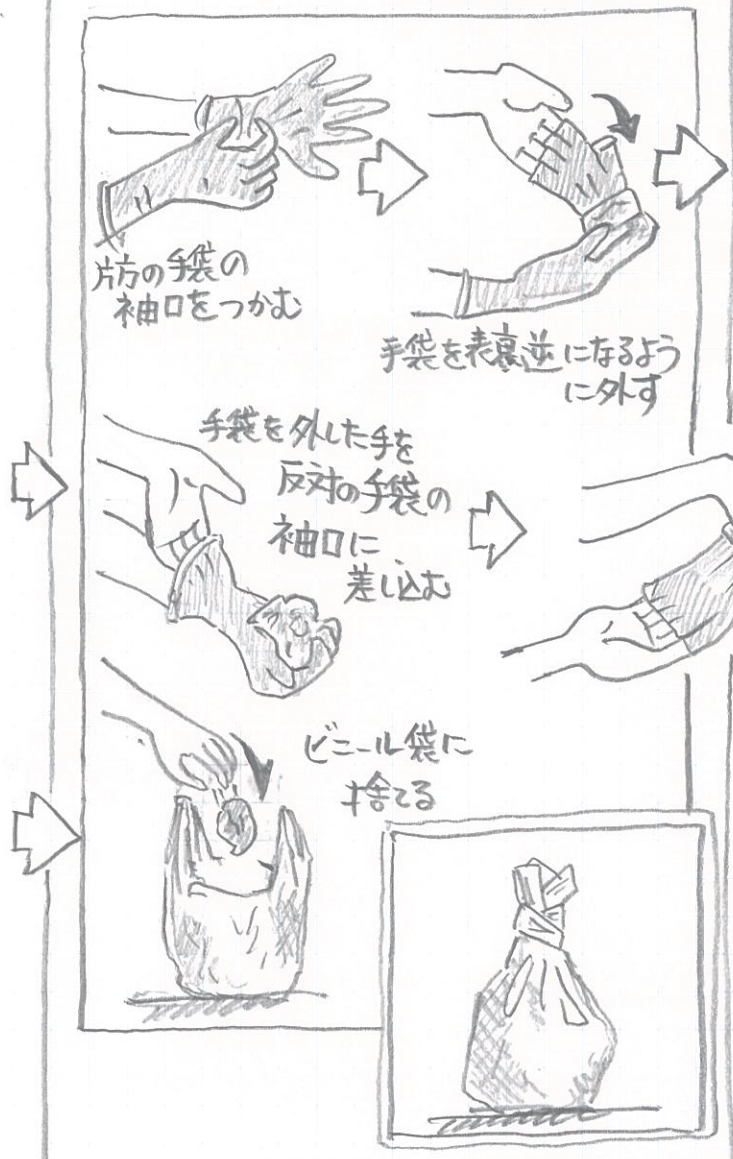 片方の手袋の
袖口をつかむ
手袋を表裏逆になるよう
に外す
手袋を外した手を
反対の手袋の
袖口に
差し込む
ビニール袋に
捨てる